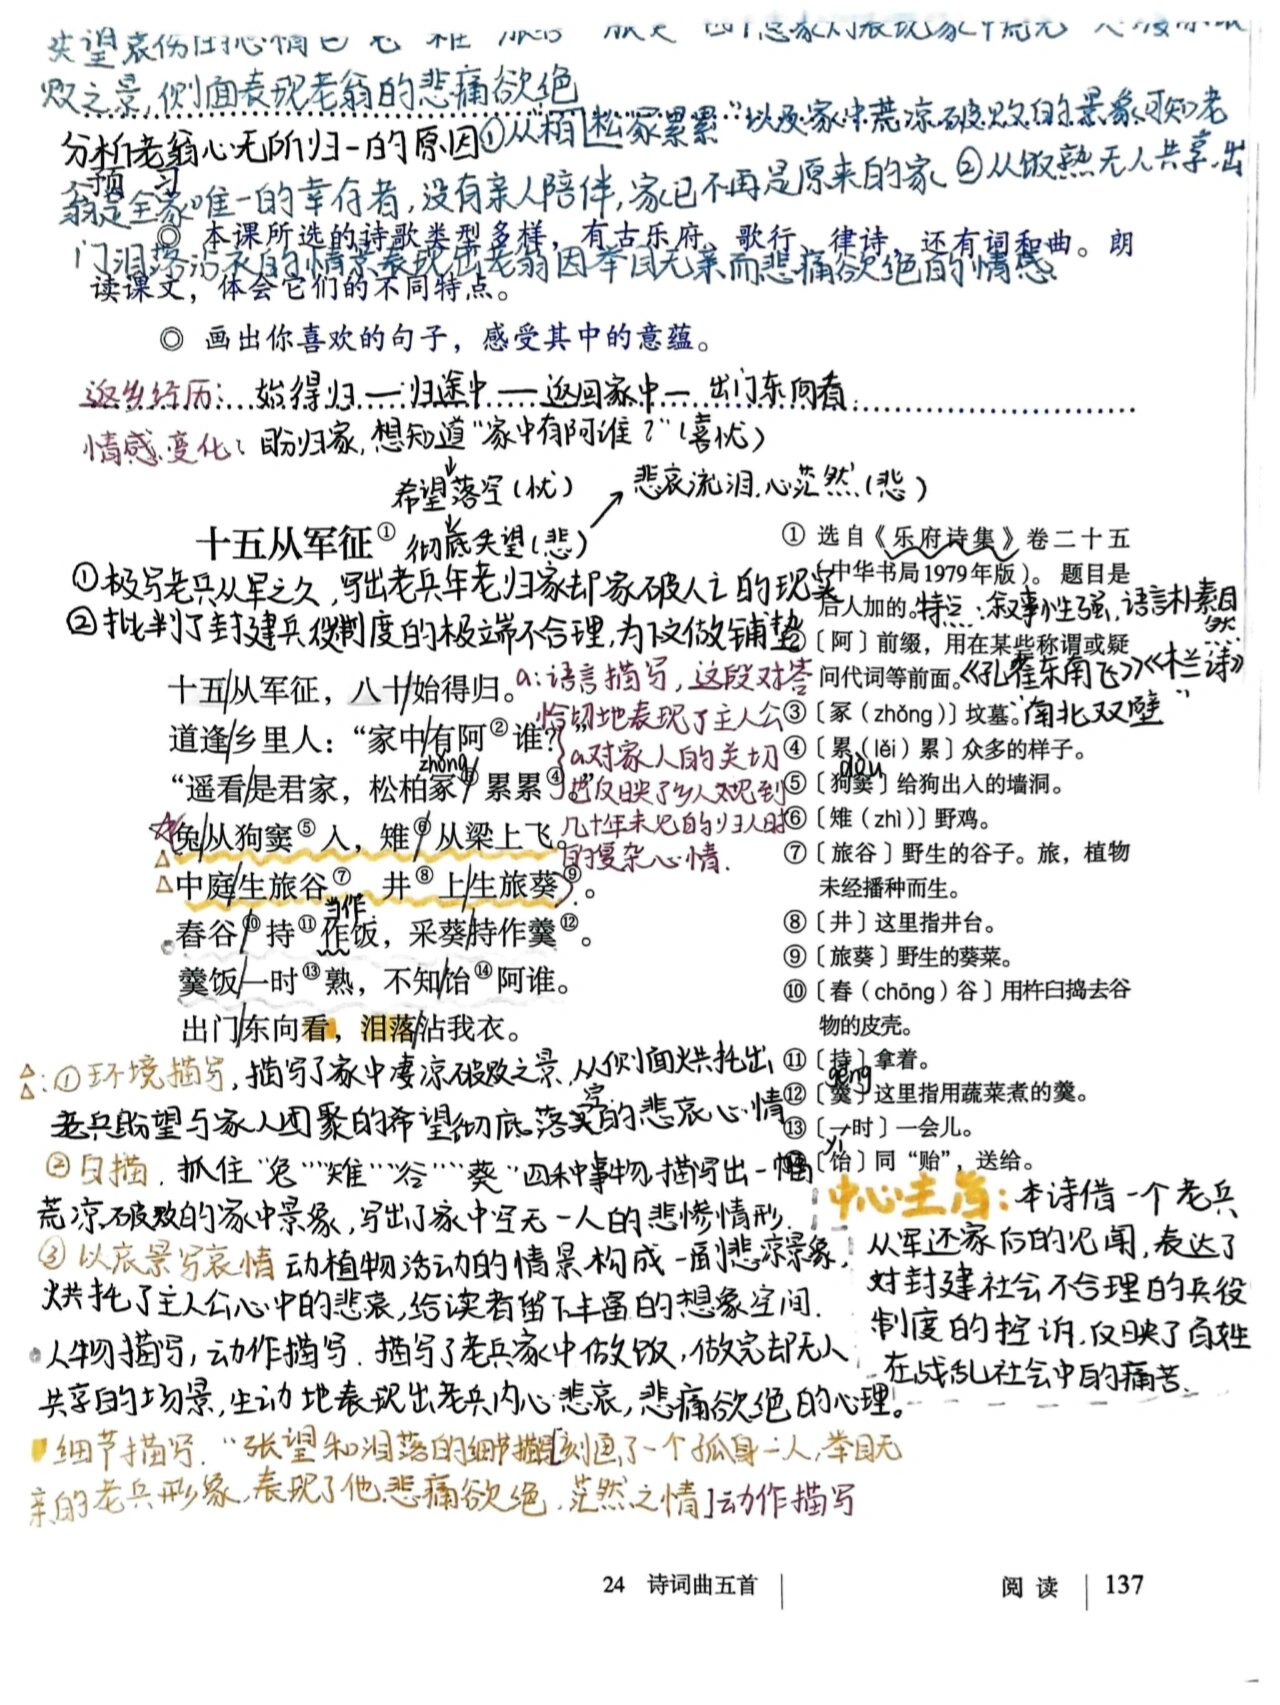 失望哀伤
败之景,侧面表现老翁的悲痛欲绝
分析老翁心无所归的原因①从"松柏冢累累"以及家中荒凉破败的景象可知老
预 习
翁是全家唯一的幸存者,没有亲人陪伴,家已不再是原来的家 ②从饭熟无人共享,出
◎ 本课所选的诗歌类型多样,有古乐府、歌行、律诗,还有词和曲。朗
门泪落沾衣的情景表现出老翁因举目无亲而悲痛欲绝的情感
读课文,体会它们的不同特点。
◎ 画出你喜欢的句子,感受其中的意蕴。
返乡经历: 始得归—归途中—返回家中—出门东向看
情感变化: 盼归家,想知道"家中有阿谁?"(喜忧)
希望落空(忧) 悲哀流泪,心茫然(悲)
十五从军征① 彻底失望(悲)
①极写老兵从军之久,写出老兵年老归家却家破人亡的现实
②批判了封建兵役制度的极端不合理,为下文做铺垫
十五/从军征,八十/始得归。
道逢/乡里人:"家中/有阿②谁?"
zhǒng
"遥看/是君家,松柏冢③/累累④。"
兔/从狗窦⑤入,雉⑥/从梁上飞。
中庭/生旅谷⑦,井⑧上/生旅葵⑨。
当作
舂谷⑩/持⑪作饭,采葵/持作羹⑫。
羹饭/一时⑬熟,不知/饴⑭阿谁。
出门/东向看,泪落/沾我衣。
a:语言描写,这段对答
恰切地表现了主人公
a对家人的关切
也反映了乡人对见到
几十年未见的归人时
的复杂心情.
① 选自《乐府诗集》卷二十五
(中华书局1979年版)。题目是
后人加的。特点:叙事性强,语言朴素自然
② 〔阿〕前缀,用在某些称谓或疑
问代词等前面。《孔雀东南飞》《木兰诗》
"南北双璧"
③ 〔冢(zhǒng)〕坟墓。
④ 〔累(lěi)累〕众多的样子。
dòu
⑤ 〔狗窦〕给狗出入的墙洞。
⑥ 〔雉(zhì)〕野鸡。
⑦ 〔旅谷〕野生的谷子。旅,植物
未经播种而生。
⑧ 〔井〕这里指井台。
⑨ 〔旅葵〕野生的葵菜。
⑩ 〔舂(chōng)谷〕用杵臼捣去谷
物的皮壳。
⑪ 〔持〕拿着。
gēng
⑫ 〔羹〕这里指用蔬菜煮的羹。
⑬ 〔一时〕一会儿。
yí
⑭ 〔饴〕同"贻",送给。
△△:①环境描写,描写了家中凄凉破败之景,从侧面烘托出
老兵盼望与家人团聚的希望彻底落空的悲哀心情
②白描. 抓住"兔""雉""谷""葵"四种事物,描写出一幅
荒凉破败的家中景象,写出了家中空无一人的悲惨情形.
③以哀景写哀情 动植物活动的情景构成一副悲凉景象,
烘托了主人公心中的悲哀,给读者留下丰富的想象空间.
人物描写,动作描写. 描写了老兵家中做饭,做完却无人
共享的场景,生动地表现出老兵内心悲哀,悲痛欲绝的心理。
细节描写. "张望和泪落的细节描写[刻画了一个孤身一人,举目无
亲的老兵形象,表现了他悲痛欲绝,茫然之情]动作描写
中心主旨:本诗借一个老兵
从军还家后的见闻,表达了
对封建社会不合理的兵役
制度的控诉,反映了百姓
在战乱社会中的痛苦.
24 诗词曲五首
阅读 137